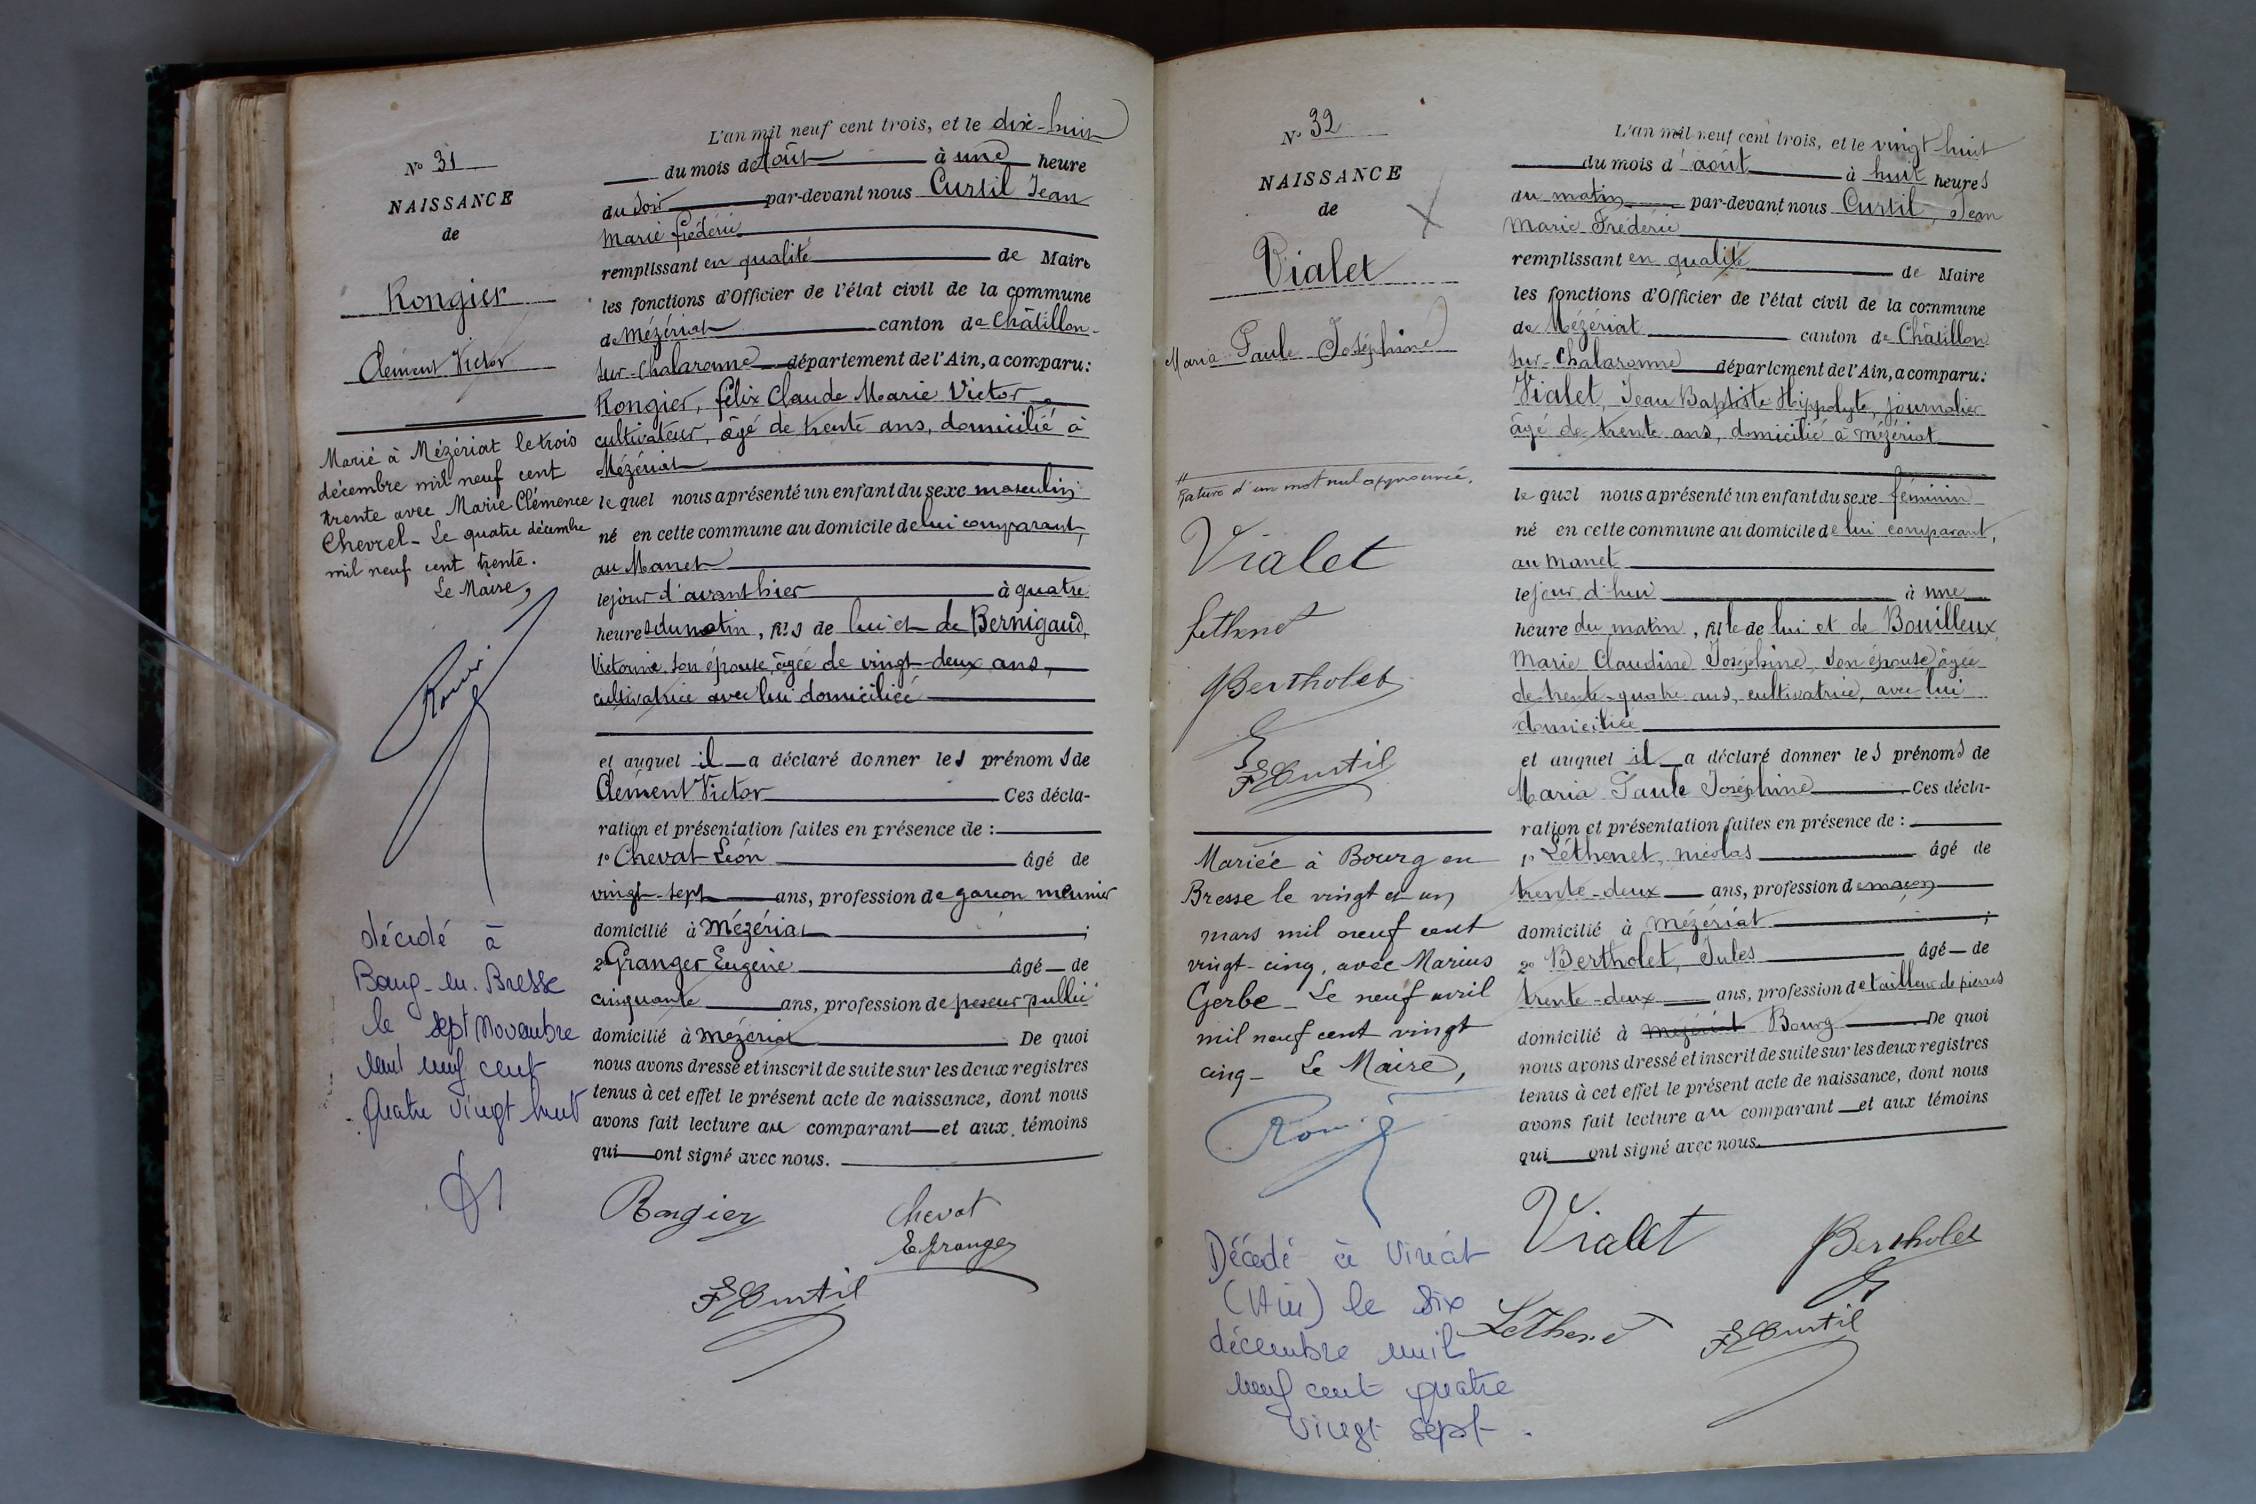 N° 31
NAISSANCE
de
Rongier
Clément Victor
Marié à Mézériat le trois
décembre mil neuf cent
trente avec Marie Clémence
Chevrel - Le quatre décembre
mil neuf cent trente.
Le Maire,
décédé à
Bourg-en-Bresse
le sept Novembre
mil neuf cent
quatre vingt huit
L'an mil neuf cent trois, et le dix-huit
du mois d'Août à une heure
du soir par-devant nous Curtil Jean
Marie frédéric
remplissant en qualité de Maire
les fonctions d'Officier de l'état civil de la commune
de Mézériat canton de Châtillon-
sur-Chalaronne département de l'Ain, a comparu:
Rongier, félix Claude Marie Victor
cultivateur, âgé de trente ans, domicilié à
Mézériat
le quel nous a présenté un enfant du sexe masculin
né en cette commune au domicile de lui comparant,
au Manet
le jour d'avant hier à quatre
heures du matin, fils de lui et de Bernigaud,
Victorine son épouse, âgée de vingt-deux ans,
cultivatrice avec lui domiciliée
et auquel il a déclaré donner les prénoms de
Clément Victor Ces décla-
ration et présentation faites en présence de :
1° Chevat Léon âgé de
vingt-sept ans, profession de garçon meunier
domicilié à Mézériat ;
2° Granger Eugène âgé de
cinquante ans, profession de peseur public
domicilié à Mézériat De quoi
nous avons dressé et inscrit de suite sur les deux registres
tenus à cet effet le présent acte de naissance, dont nous
avons fait lecture au comparant et aux témoins
qui ont signé avec nous.
Rongier
Chevat
E Granger
F Curtil
N° 32
NAISSANCE
de
Vialet
Maria Paule Joséphine
Rature d'un mot nul approuvée.
Vialet
Lethenet
Bertholet
F Curtil
Mariée à Bourg en
Bresse le vingt et un
mars mil neuf cent
vingt-cinq, avec Marius
Gerbe - Le neuf avril
mil neuf cent vingt
cinq - Le Maire,
Décédé à Viriat
(Ain) le six
décembre mil
neuf cent quatre
vingt sept.
L'an mil neuf cent trois, et le vingt-huit
du mois d'août à huit heures
du matin par-devant nous Curtil, Jean
Marie Frédéric
remplissant en qualité de Maire
les fonctions d'Officier de l'état civil de la commune
de Mézériat canton de Châtillon
sur-Chalaronne département de l'Ain, a comparu:
Vialet, Jean Baptiste Hippolyte, journalier
âgé de trente ans, domicilié à Mézériat
le quel nous a présenté un enfant du sexe féminin
né en cette commune au domicile de lui comparant,
au Manet
le jour d'hui à une
heure du matin, fille de lui et de Bouilleux
Marie Claudine Joséphine, son épouse âgée
de trente-quatre ans, cultivatrice, avec lui
domiciliée
et auquel il a déclaré donner les prénoms de
Maria Paule Joséphine Ces décla-
ration et présentation faites en présence de :
1° Léthenet, Nicolas âgé de
trente-deux ans, profession de maçon
domicilié à Mézériat ;
2° Bertholet, Jules âgé de
trente-deux ans, profession de tailleur de pierres
domicilié à Mézériat Bourg De quoi
nous avons dressé et inscrit de suite sur les deux registres
tenus à cet effet le présent acte de naissance, dont nous
avons fait lecture au comparant et aux témoins
qui ont signé avec nous.
Vialet
Bertholet
Lethenet
F Curtil